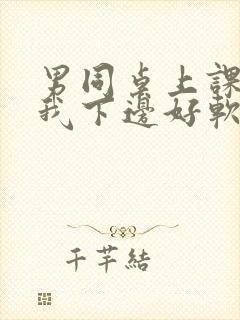 男同桌上課
我下邊好軟
千芊結